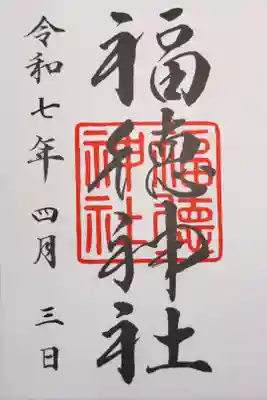 福徳神社
福徳
神社
令和七年 四月 三日